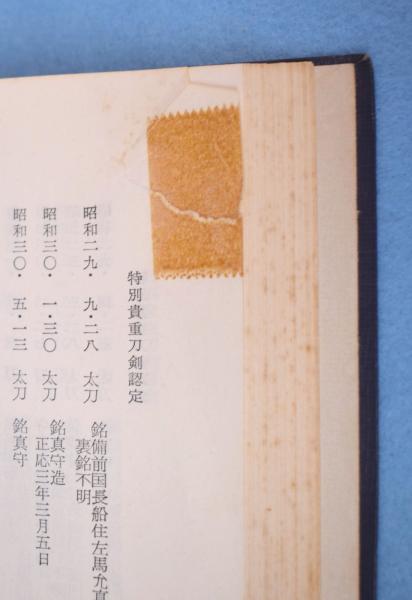 特別貴重刀剣認定
昭和二九・ 九・二八 太刀 銘備前国長船住左馬允真
裏銘不明
昭和三〇・ 一・三〇 太刀 銘真守造
正応三年三月五日
昭和三〇・ 五・一三 太刀 銘真守